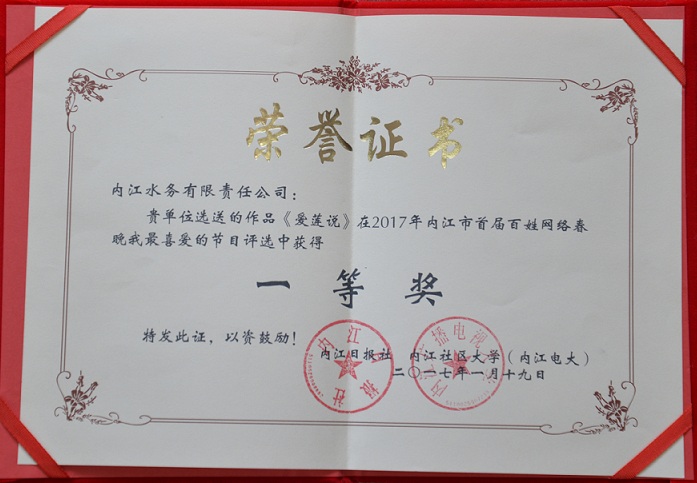 荣誉证书
内江水务有限责任公司：
贵单位选送的作品《爱莲说》在2017年内江市首届百姓网络春
晚我最喜爱的节目评选中获得
一等奖
特发此证，以资鼓励！
内江日报社 内江社区大学（内江电大）
二〇一七年一月十九日